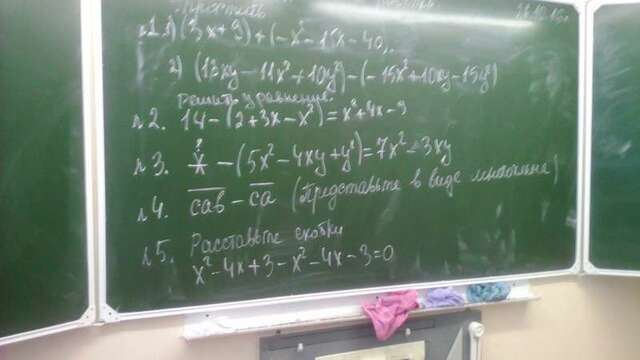 Упростить
№1. 1) (3x+9)+(-x²-15x-40)
2) (13xy-11x²+10y²)-(-15x²+10xy-15y²)
Решить уравнение
№2. 14-(2+3x-x²)=x²+4x-9
№3. * -(5x²-4xy+y²)=7x²-3xy
№4. cab-ca (Представьте в виде многочлена)
№5. Расставьте скобки
x²-4x+3-x²-4x-3=0